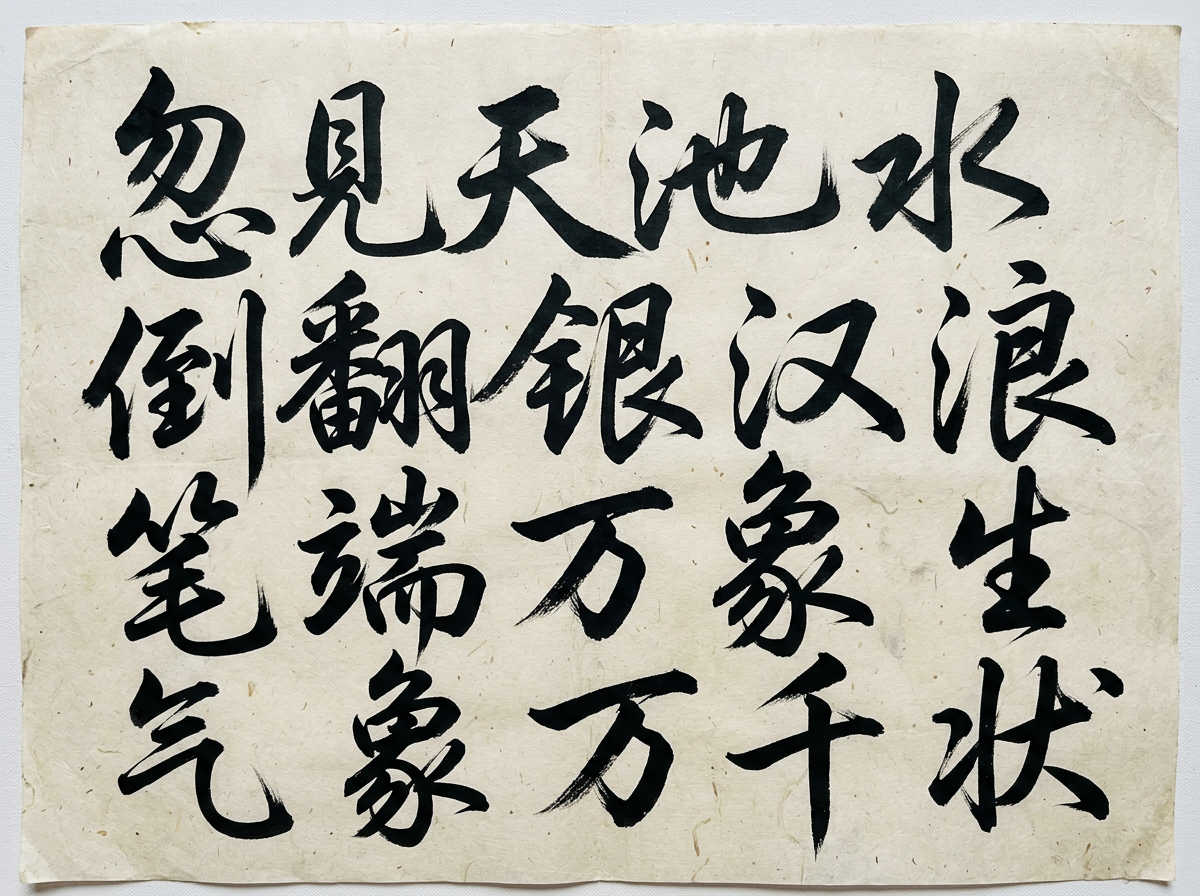 忽見天池水
倒翻银汉浪
笔端万象生
气象万千状